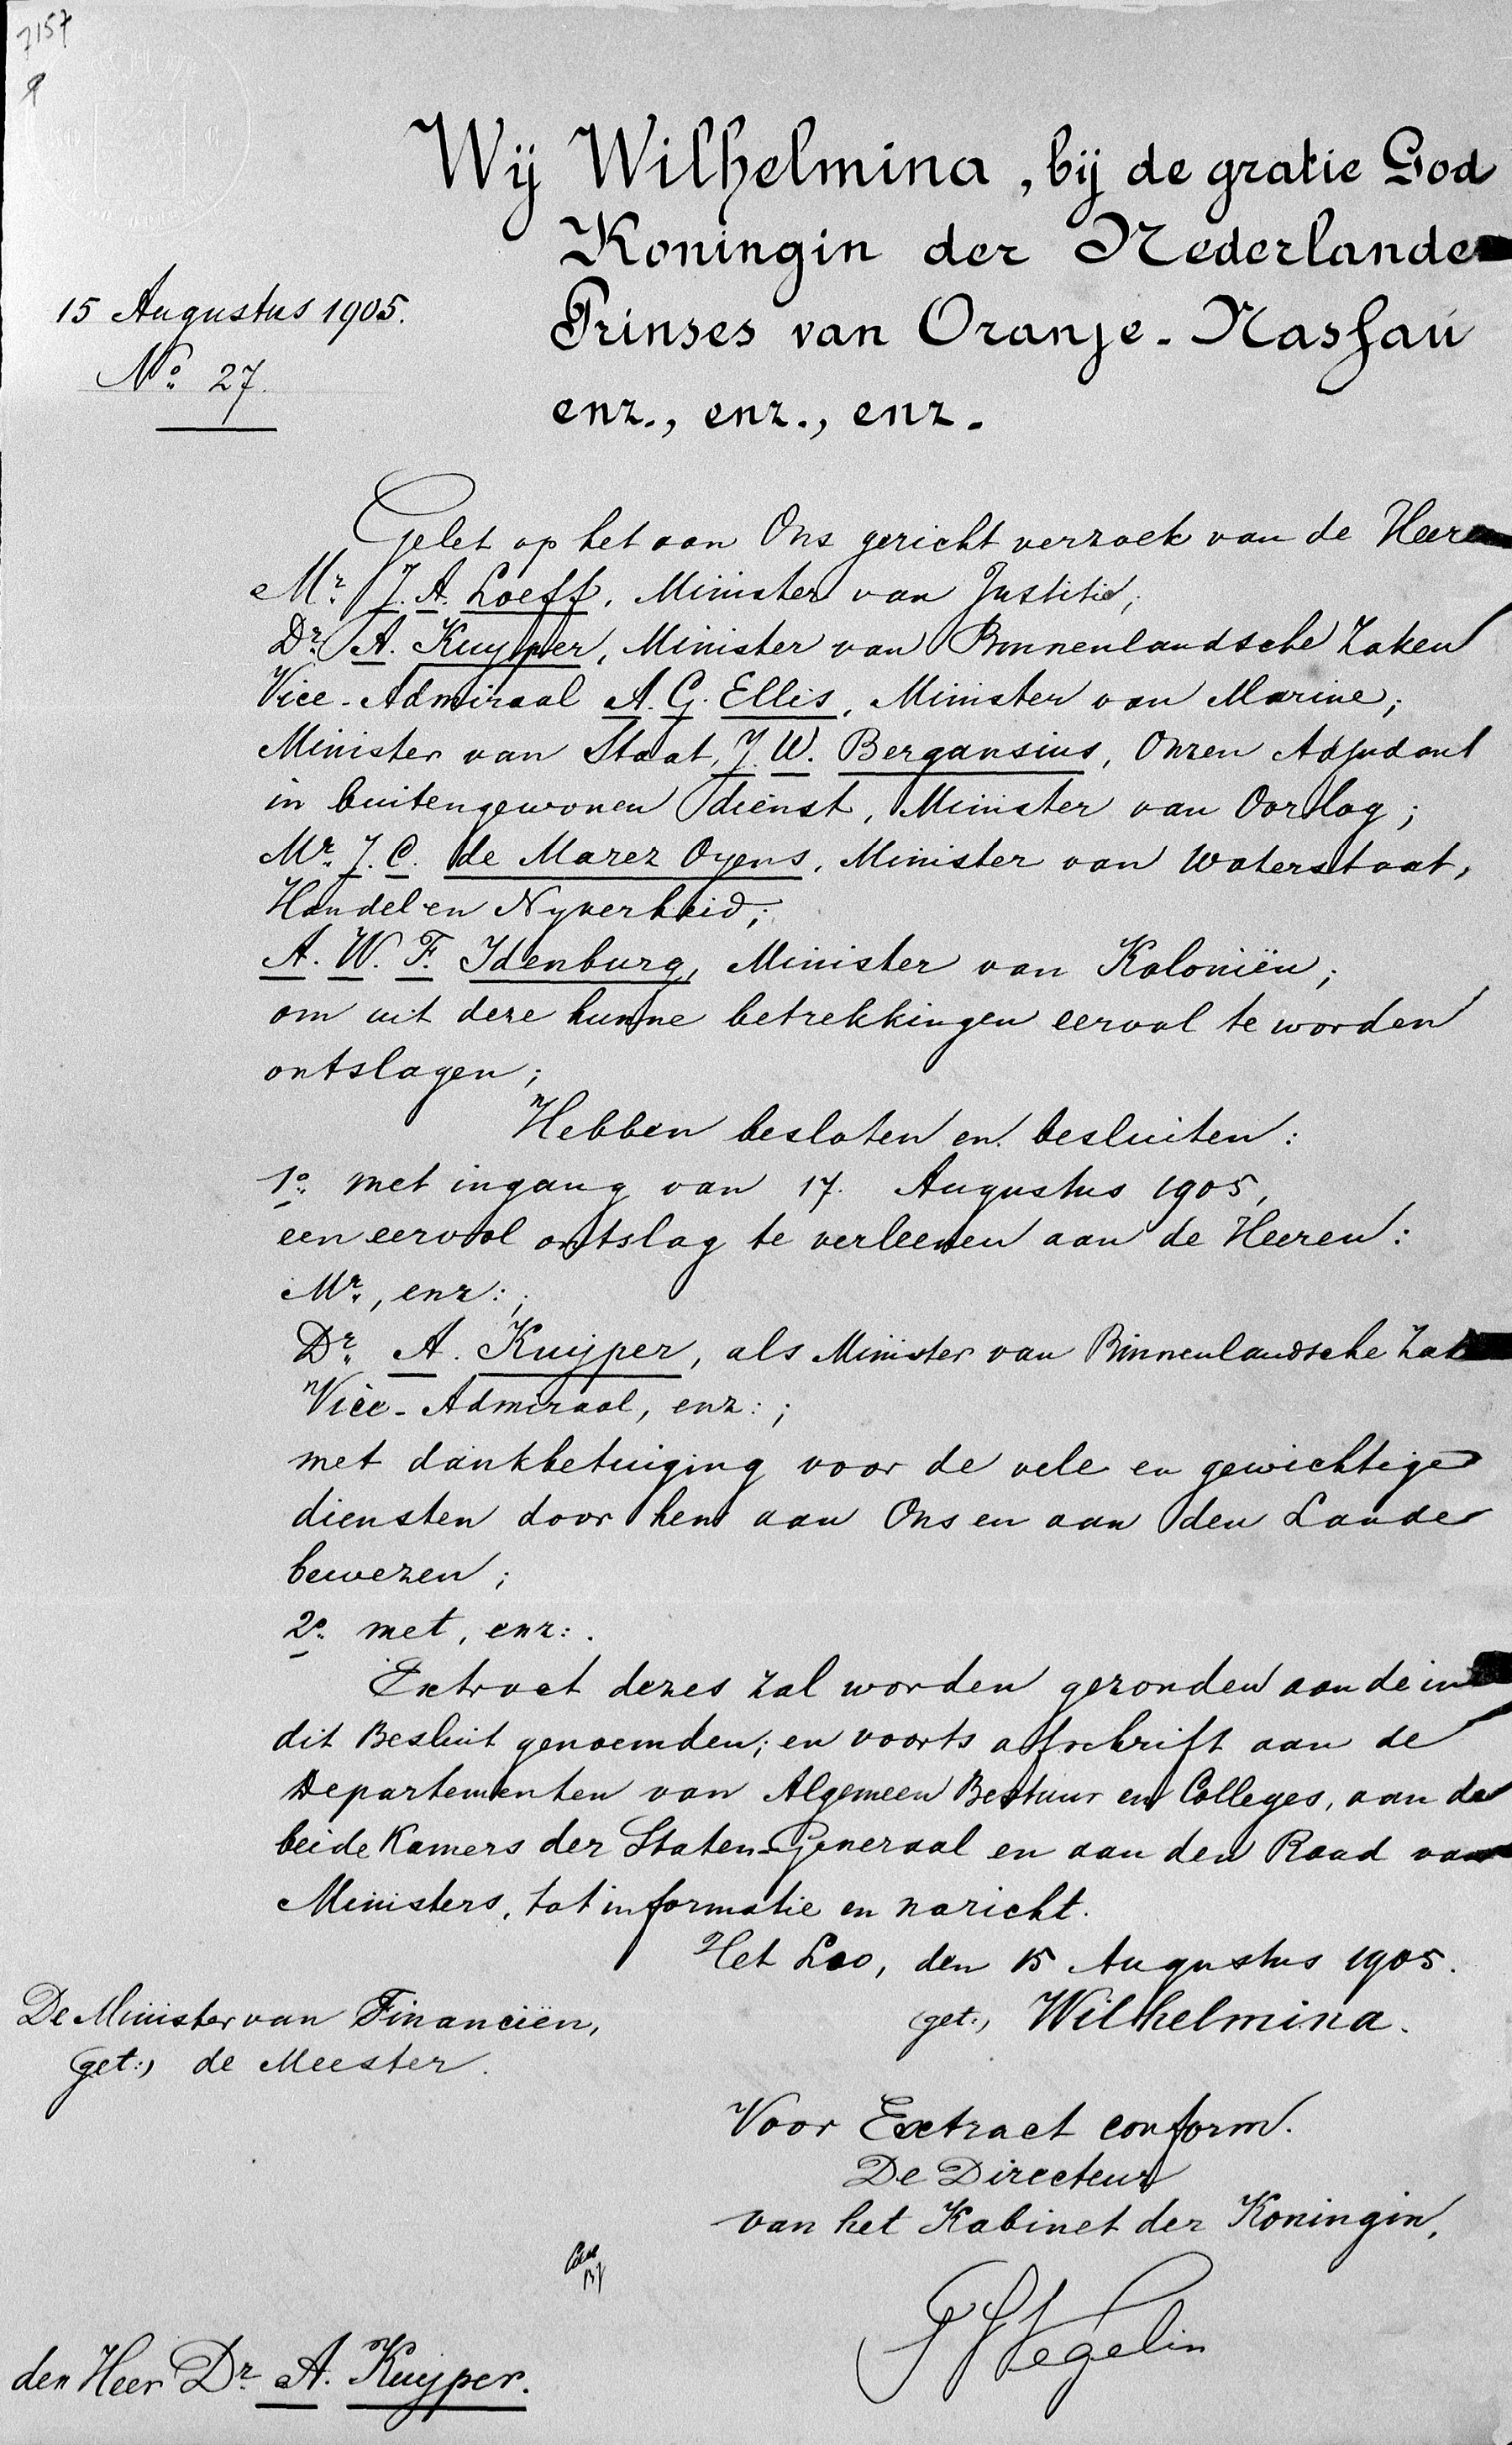 7157
Wij Wilhelmina, bij de gratie God
Koningin der Nederlande
15 Augustus 1905.
Prinses van Oranje-Nassau
No. 27.
enz., enz., enz.
Gelet op het aan Ons gericht verzoek van de Heere
Mr. J. A. Loeff, Minister van Justitie;
Dr. A. Kuyper, Minister van Binnenlandsche Zaken
Vice-Admiraal A. G. Ellis, Minister van Marine;
Minister van Staat, J. W. Bergansius, Onzen Adjudant
in buitengewonen dienst, Minister van Oorlog;
Mr. J. C. de Marez Oyens, Minister van Waterstaat,
Handel en Nyverheid;
A. W. F. Idenburg, Minister van Koloniën;
om uit deze hunne betrekkingen eervol te worden
ontslagen;
Hebben besloten en besluiten:
1o. met ingang van 17. Augustus 1905,
een eervol ontslag te verleenen aan de Heeren:
Mr., enz:;
Dr. A. Kuijper, als Minister van Binnenlandsche Zak
Vice-Admiraal, enz:;
met dankbetuiging voor de vele en gewichtige
diensten door hen aan Ons en aan den Lande
bewezen;
2o. met, enz:.
Extract dezes zal worden gezonden aan de in
dit Besluit genoemden; en voorts afschrift aan de
Departementen van Algemeen Bestuur en Colleges, aan de
beide Kamers der Staten-Generaal en aan den Raad van
Ministers, tot informatie en naricht.
Het Loo, den 15 Augustus 1905.
De Minister van Financiën,
(get:) Wilhelmina.
(get:) de Meester.
Voor Extract conform.
De Directeur
van het Kabinet der Koningin,
Hegelin
den Heer Dr. A. Kuijper.